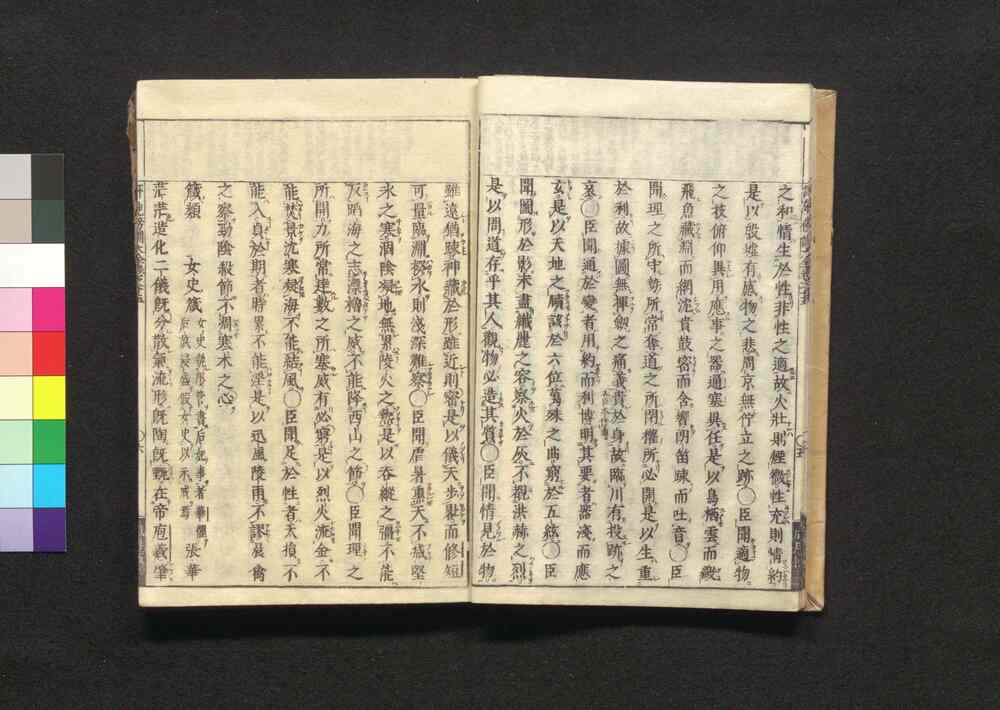 之和情生於性非性之適故火壯則煙微性充則情約
是以殷墟有感物之悲周京無佇立之跡○臣聞適物
之技俯仰異用應事之器通塞異任是以鳥栖雲而繳
飛魚藏淵而網沈賁鼓密而含響朗笛疎而吐音○臣
聞理之所守勢所常奪道之所閉權所必開是以生重
於利故據圖無揮劍之痛義貴於身故臨川有投跡之
哀○臣聞通於變者用約而利博明其要者器淺而應
玄是以天地之賾該於六位萬殊之曲窮於五絃○臣
聞圖形於影未盡纖麗之容察火於灰不覩洪赫之烈
是以問道存乎其人觀物必造其質○臣聞情見於物
雖遠猶疎神藏於形雖近則密是以儀天步晷而脩短
可量臨淵揆水則淺深難察○臣聞虐暑熏天不減堅
氷之寒涸陰凝地無累陵火之熱是以吞縱之彊不能
反蹈海之志漂櫓之威不能降西山之節○臣聞理之
所開力所常達數之所塞威有必窮是以烈火流金不
能焚景沈寒凝海不能結風○臣聞足於性者天損不
能入貞於期者時累不能淫是以迅風陵雨不謬晨禽
之察勁陰殺節不凋寒木之心
箴類 女史箴 女史號彤管書后妃事者華懼后族浸盛假女史以示戒焉 張華
茫茫造化二儀既分散氣流形既陶既甄在帝庖羲肇